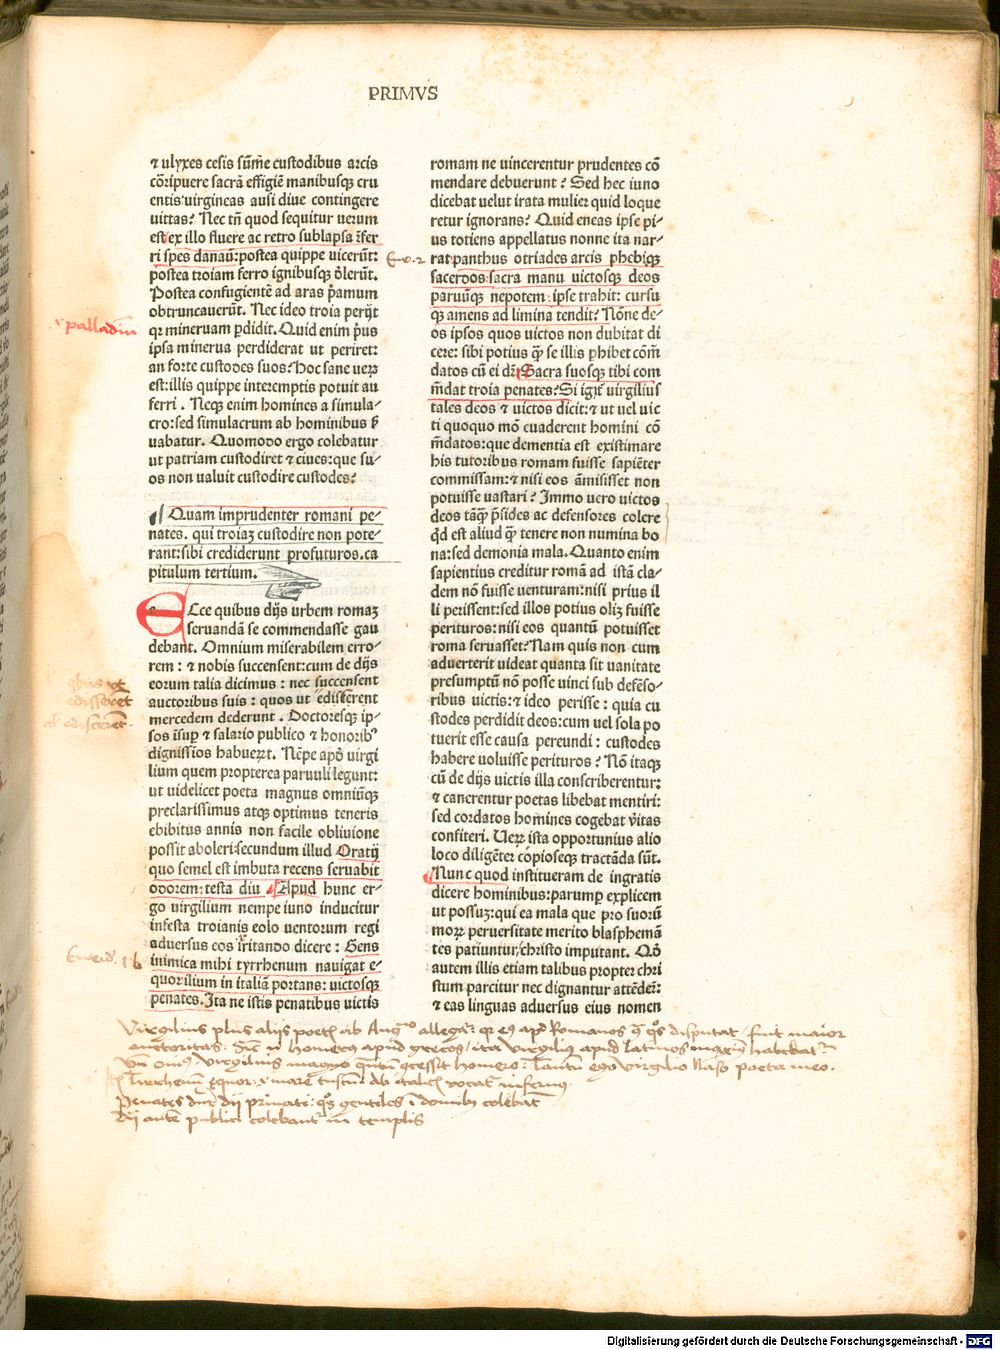 PRIMVS
⁊ ulyxes cesis sūm̄e custodibus arcis
cōripuere sacrā effigiē manibusqꝫ cru
entis uirgineas ausi diue contingere
uittas? Nec tn̄ quod sequitur uerum
est ex illo fluere ac retro sublapsa r̄efer
ri spes danaū: postea quippe uicerūt:
postea troiam ferro ignibusqꝫ d̄lerūt.
Postea confugientē ad aras p̄amum
obtruncauerūt. Nec ideo troia perijt
qꝛ mineruam ꝑdidit. Quid enim p̄us
ipsa minerua perdiderat ut periret:
an forte custodes suos? hoc sane ueꝝ
est: illis quippe interemptis potuit au
ferri. Neqꝫ enim homines a simula-
cro: sed simulacrum ab hominibus ẜ
uabatur. Quomodo ergo colebatur
ut patriam custodiret ⁊ ciues: que su-
os non ualuit custodire custodes?
Quam imprudenter romani pe-
nates. qui troiaꝫ custodire non pote-
rant: sibi crediderunt profuturos. ca
pitulum tertium.
Ecce quibus dijs urbem romaꝫ
seruandā se commendasse gau
debant. Omnium miserabilem erro-
rem: ⁊ nobis succensent: cum de dijs
eorum talia dicimus: nec succensent
auctoribus suis: quos ut edisẜerent
mercedem dederunt. Doctoresqꝫ ip-
sos īsuꝑ ⁊ salario publico ⁊ honoribꝰ
dignissīos habueꝝt. Nēpe apd̄ uirgi
lium quem propterea paruuli legunt:
ut uidelicet poeta magnus omniūqꝫ
preclarissimus atqꝫ optimus teneris
ebibitus annis non facile obliuione
possit aboleri: secundum illud Oratij
quo semel est imbuta recens seruabit
odorem: testa diu Apud hunc er-
go uirgilium nempe iuno inducitur
infesta troianis eolo uentorum regi
aduersus eos irritando dicere: Gens
inimica mihi tyrrhenum nauigat e-
quor: ilium in italiā portans: uictosqꝫ
penates. Ita ne istis penatibus uictis
romam ne uincerentur prudentes cō
mendare debuerunt? Sed hec iuno
dicebat uelut irata mulier quid loque
retur ignorans? Quid eneas ipse pi-
us totiens appellatus nonne ita nar-
rat panthus otriades arcis phebiqꝫ
sacerdos: sacra manu uictosqꝫ deos
paruūqꝫ nepotem: ipse trahit: cursu
qꝫ amens ad limina tendit? Nōne de-
os ipsos quos uictos non dubitat di
cere: sibi potius qꝫ se illis ꝑhibet cōm̄
datos cū ei dꝛ̄ Sacra suosqꝫ tibi com
m̄dat troia penates? Si igit̄ uirgilius
tales deos ⁊ uictos dicit: ⁊ ut uel uic
ti quoquo mō euaderent homini cō
m̄datos: que dementia est existimare
his tutoribus romam fuisse sapiēter
commissam: ⁊ nisi eos āmisisset non
potuisse uastari? Immo uero uictos
deos tāqꝫ p̄sides ac defensores colere
qd̄ est aliud qꝫ tenere non numina bo
na: sed demonia mala. Quanto enim
sapientius creditur romā ad istā cla-
dem nō fuisse uenturam: nisi prius il
li perissent: sed illos potius oliꝫ fuisse
perituros: nisi eos quantū potuisset
roma seruasset? Nam quis non cum
aduerterit uideat quanta sit uanitate
presumptū nō posse uinci sub defēso-
ribus uictis: ⁊ ideo perisse: quia cu
stodes perdidit deos: cum uel sola po
tuerit esse causa pereundi: custodes
habere uoluisse perituros? Nō itaqꝫ
cū de dijs uictis illa conscriberentur:
⁊ canerentur poetas libebat mentiri:
sed cordatos homines cogebat v̄itas
confiteri. Ueꝝ ista opportunius alio
loco diligēter copioseqꝫ tractāda sūt.
Nunc quod institueram de ingratis
dicere hominibus: parumꝑ explicem
ut possuꝫ: qui ea mala que pro suorū
moꝝ peruersitate merito blasphemā
tes patiuntur, christo imputant. Qd̄
autem illis etiam talibus propter chri
stum parcitur nec dignantur attēdeī:
⁊ eas linguas aduersus eius nomen
palladiū
Eneid. 1. b
Virgilius plus alijs poetis ab Augᵒ allegaꝛ̄: qꝛ eꝰ apd̄ Romanos disputat, fuit maior
auctoritas. homerus apud grecos, ita Virgilius apud latinos habebatꝛ
Virgilius magno homero: Virgilio Naso poeta meo.
Tirrhenū equor: .i. mare tuscū: ab italis vocatꝛ infernū.
Penates dicūꝛ dij priuati: qͦs gentiles ī domibꝰ colebāt
dij autē publici colebantꝛ in templis
Digitalisierung gefördert durch die Deutsche Forschungsgemeinschaft - DFG